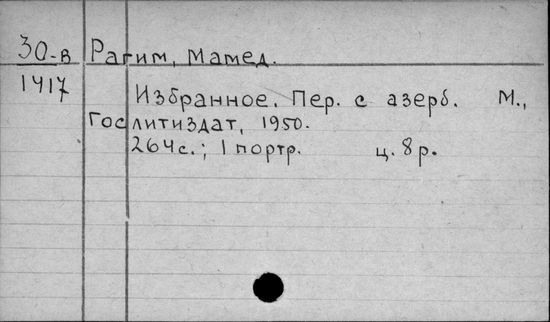 30-в Рагим, Мамед.
1417
Избранное. Пер. с азерб. М.,
Гослитиздат, 1950.
264с.; 1 портр. ц. 8р.